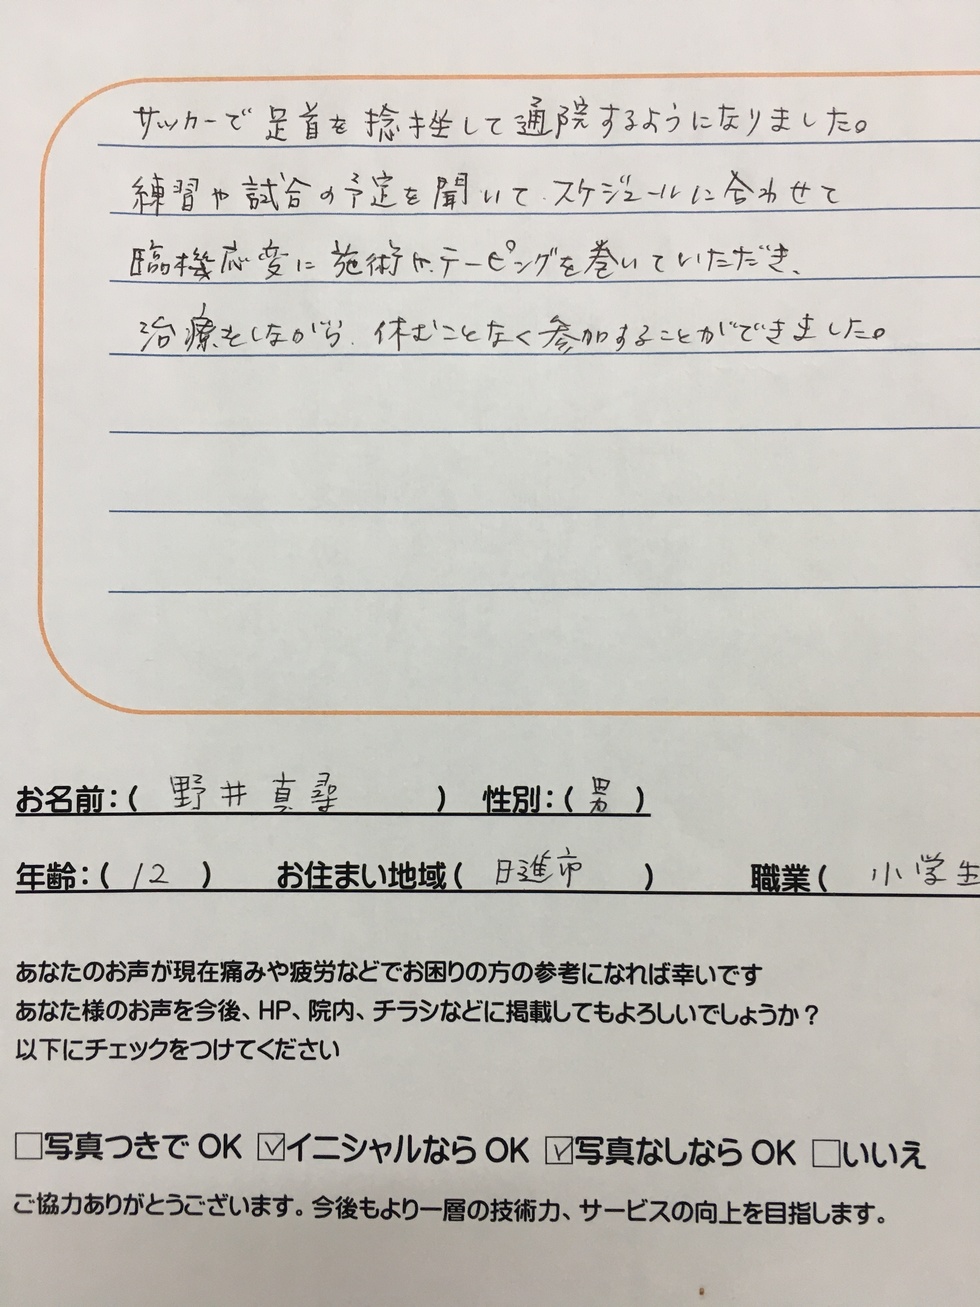 サッカーで足首を捻挫して通院するようになりました。
練習や試合の予定を聞いて.スケジュールに合わせて
臨機応変に施術や.テーピングを巻いていただき、
治療をしながら.休むことなく参加することができました。
お名前：( 野井真尋 ) 性別：( 男 )
年齢：( 12 ) お住まい地域( 日進市 ) 職業( 小学生
あなたのお声が現在痛みや疲労などでお困りの方の参考になれば幸いです
あなた様のお声を今後、HP、院内、チラシなどに掲載してもよろしいでしょうか？
以下にチェックをつけてください
□写真つきで OK ☑イニシャルなら OK ☑写真なしなら OK □いいえ
ご協力ありがとうございます。今後もより一層の技術力、サービスの向上を目指します。